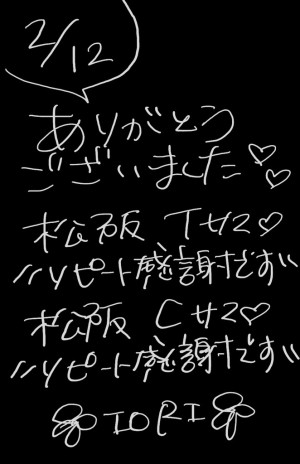 2/12
ありがとう
ございました♡♡
松阪 Tサマ♡
〃リピート感謝です〃
松阪 Cサマ♡
〃リピート感謝です〃
IORI